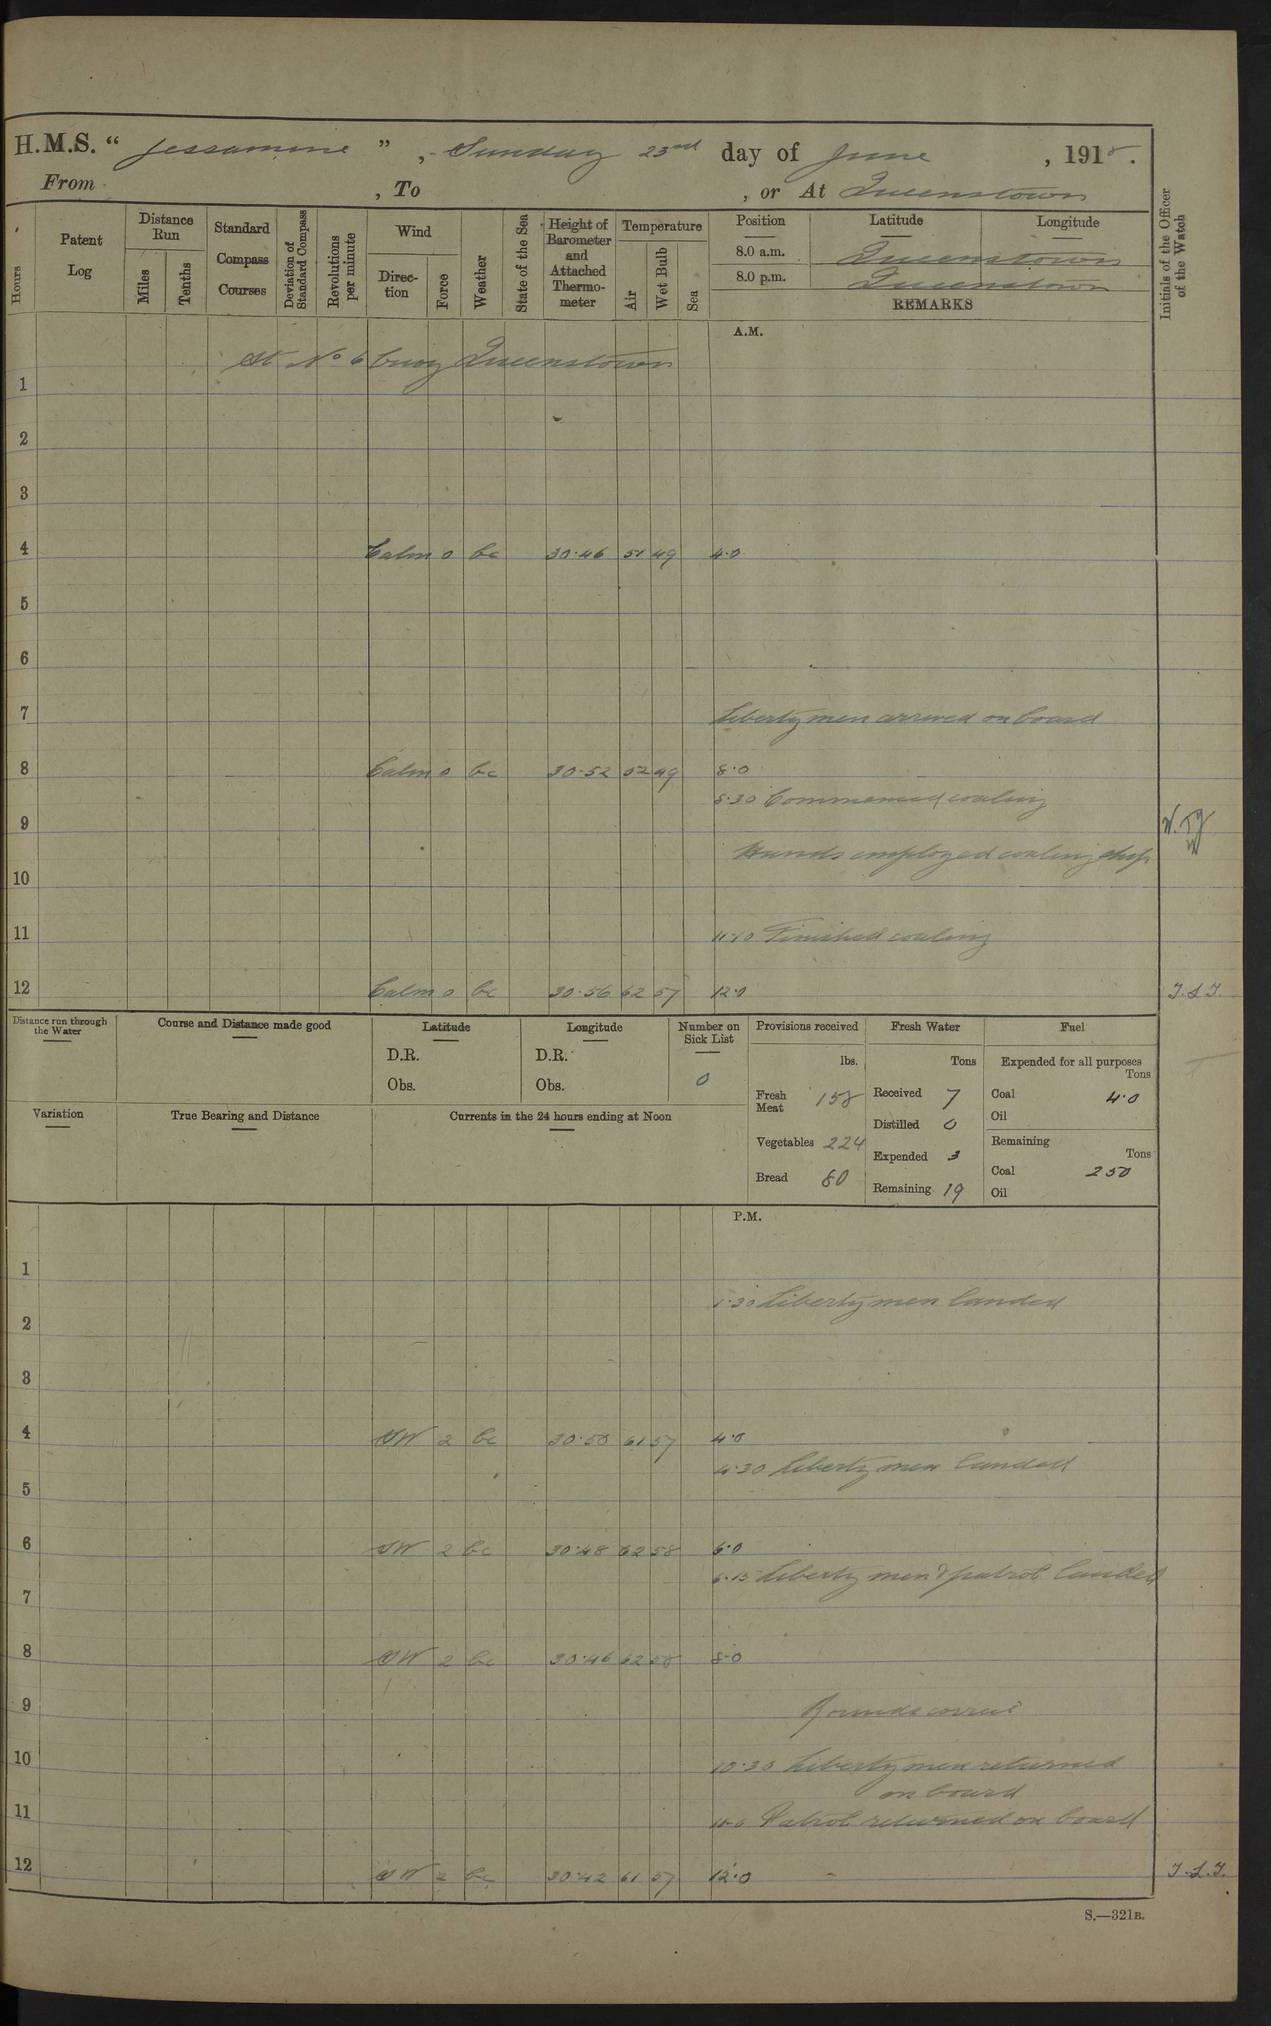 H.M.S. “ Jessamine ” , Sunday 23rd day of June , 1918.
From , To , or At Queenstown
Hours
Patent Log
Distance Run
Miles
Tenths
Standard Compass Courses
Deviation of Standard Compass
Revolutions per minute
Wind
Direc-tion
Force
Weather
State of the Sea
Height of Barometer and Attached Thermo-meter
Temperature
Air
Wet Bulb
Sea
Position Latitude Longitude
8.0 a.m. Queenstown
8.0 p.m. Queenstown
REMARKS
Initials of the Officer of the Watch
A.M.
At No 6 buoy Queenstown
1
2
3
4 Calm 0 bc 30.46 51 49 4.0
5
6
7 Liberty men arrived on board
8 Calm 0 bc 30.52 52 49 8.0
8.30 Commenced coaling
9
Hands employed coaling ship
10
11 11.10 Finished coaling
12 Calm 0 bc 30.56 62 57 12.0
Distance run through the Water
Course and Distance made good
Latitude
D.R.
Obs.
Longitude
D.R.
Obs.
Number on Sick List
0
Variation
True Bearing and Distance
Currents in the 24 hours ending at Noon
Provisions received
lbs.
Fresh Meat 158
Vegetables 224
Bread 80
Fresh Water
Tons
Received 7
Distilled 0
Expended 3
Remaining 19
Fuel
Expended for all purposes
Tons
Coal 4.0
Oil
Remaining
Tons
Coal 250
Oil
P.M.
1
1.30 Liberty men landed
2
3
4 SW 2 bc 30.50 61 57 4.0
4.30 Liberty men landed
5
6 SW 2 bc 30.48 62 58 6.0
6.15 Liberty men & patrol landed
7
8 SW 2 bc 30.46 62 58 8.0
9 Rounds correct
10 10.30 Liberty men returned
on board
11 11.0 Patrol returned on board
12 SW 2 bc 30.42 61 57 12.0
S.—321B.